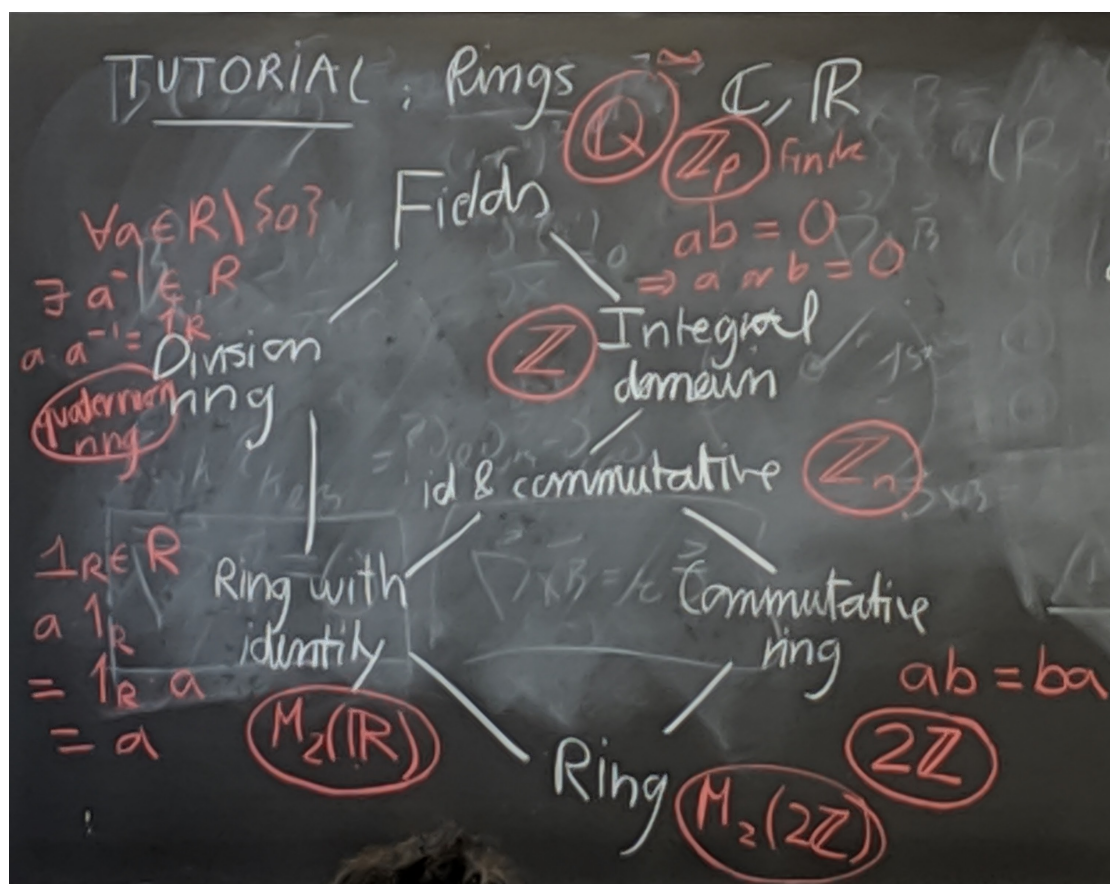 TUTORIAL : Rings
ℚ ∞ ℂ, ℝ
ℤₚ finite
Fields
∀a ∈ R \ {0}
∃ a⁻¹ ∈ R
a a⁻¹ = 1_R
ab = 0
⇒ a or b = 0
Division
ring
quaternion
ring
ℤ
Integral
domain
id & commutative
ℤₙ
1_R ∈ R
a 1_R
= 1_R a
= a
Ring with
identity
M₂(ℝ)
Commutative
ring
ab = ba
2ℤ
Ring
M₂(2ℤ)